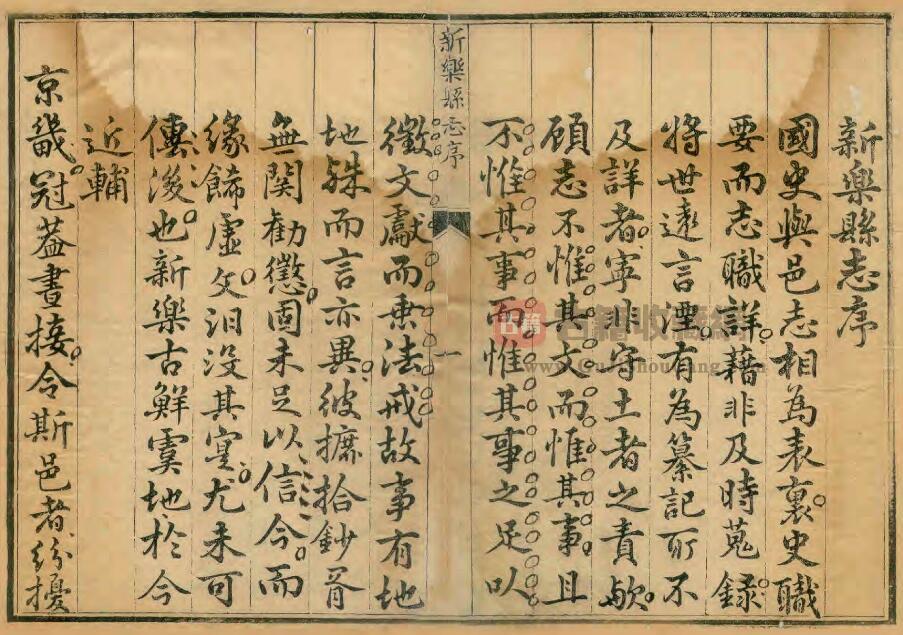 新樂縣志序
國史與邑志相為表裏史職
要而志職詳藉非及時蒐錄
將世遠言湮有為纂記所不
及詳者寧非守土者之責歟
顧志不惟其文而惟其事且
不惟其事而惟其事之足以
新樂縣志序
一
徵文獻而垂法戒故事有地
地殊而言亦異彼摭拾鈔胥
無関勸懲固未足以信今而
緣餙虛文汨沒其寔尤未可
傳後也新樂古鮮虞地於今
近輔
京畿冠葢晝接令斯邑者紛擾
古籍